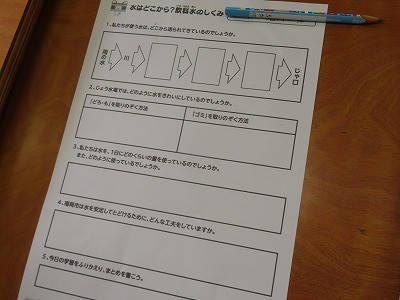 水はどこから?飲料水のしくみ
1．私たちが使う水は、どこから送られてきているのでしょうか。
雨の水
川
じゃ口
2．じょう水場では、どのように水をきれいにしているのでしょうか。
「どろ・も」を取りのぞく方法
「ゴミ」を取りのぞく方法
3．私たちは水を、1日にどのくらいの量を使っているのでしょうか。
また、どのように使っているでしょうか。
4．福岡市は水を安定してとどけるために、どんな工夫をしていますか。
5．今日の学習をふりかえり、まとめを書こう。